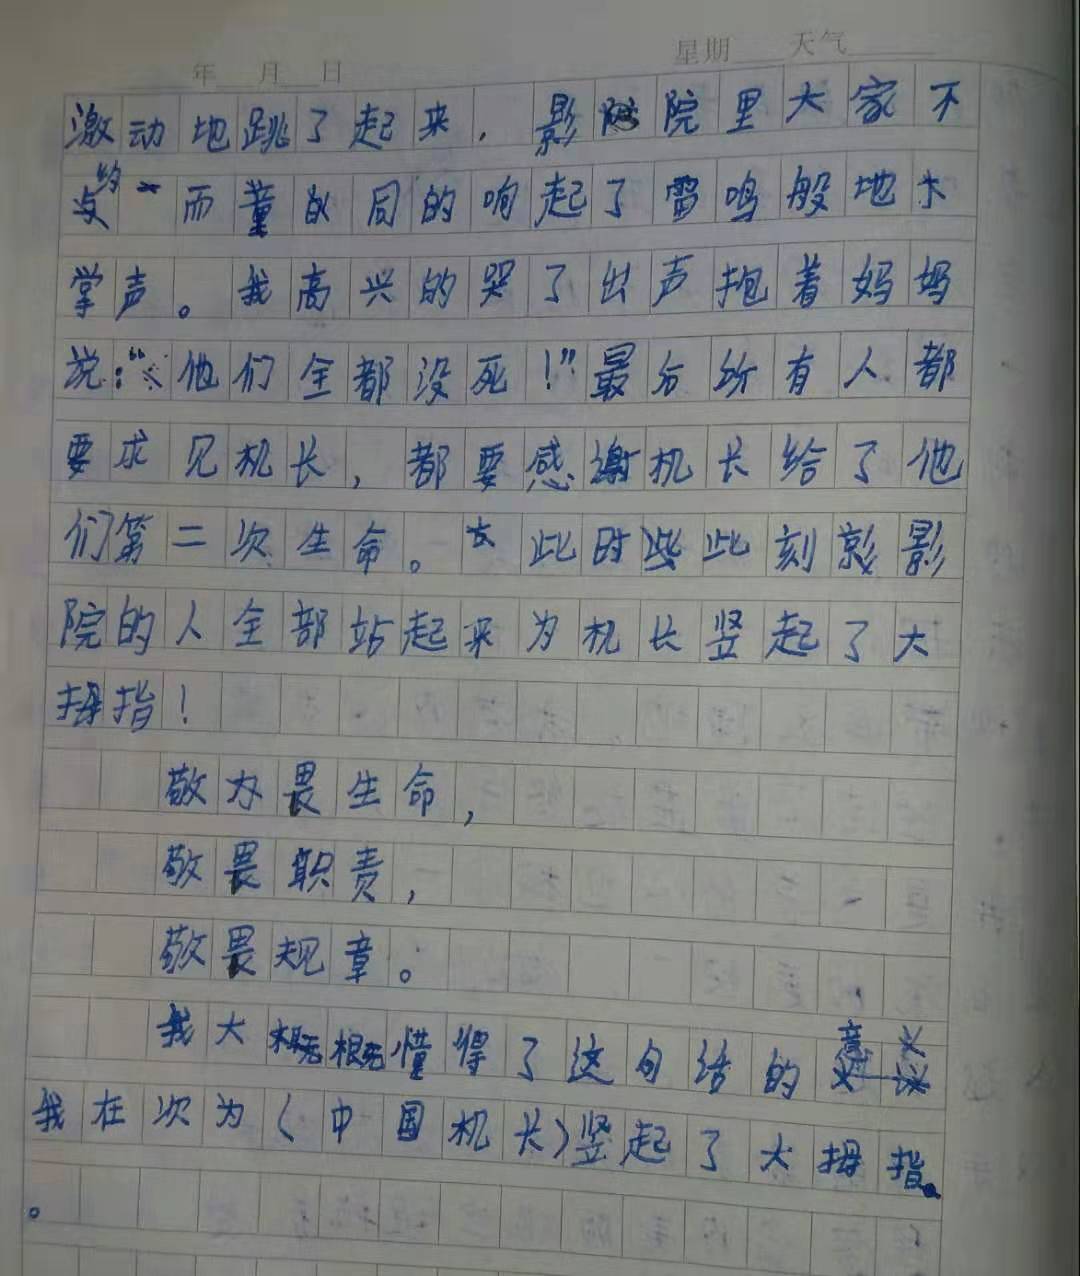 年 月 日 星期 天气
激动地跳了起来，影院里大家不
约而董的同的响起了雷鸣般地
掌声。我高兴的哭了出声抱着妈妈
说：“他们全都没死！”最后所有人都
要求见机长，都要感谢机长给了他
们第二次生命。此时此刻影
院的人全部站起来为机长竖起了大
拇指！
敬畏生命，
敬畏职责，
敬畏规章。
我大概懂得了这句话的意义
我在次为《中国机长》竖起了大拇指
。